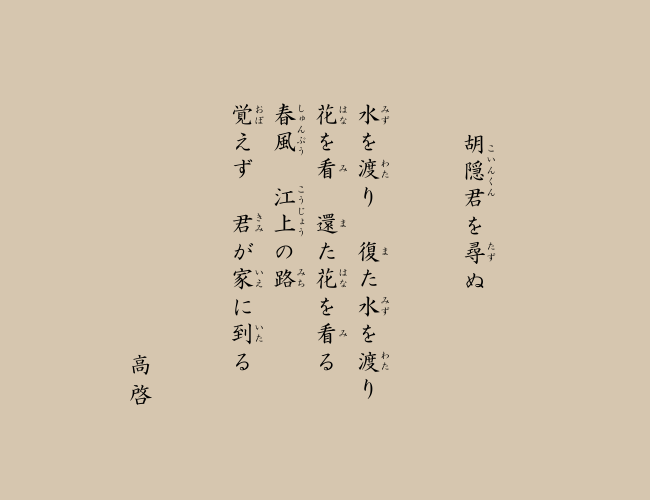 胡隠君を尋ぬ
水を渡り 復た水を渡り
花を看 還た花を看る
春風 江上の路
覚えず 君が家に到る
高啓